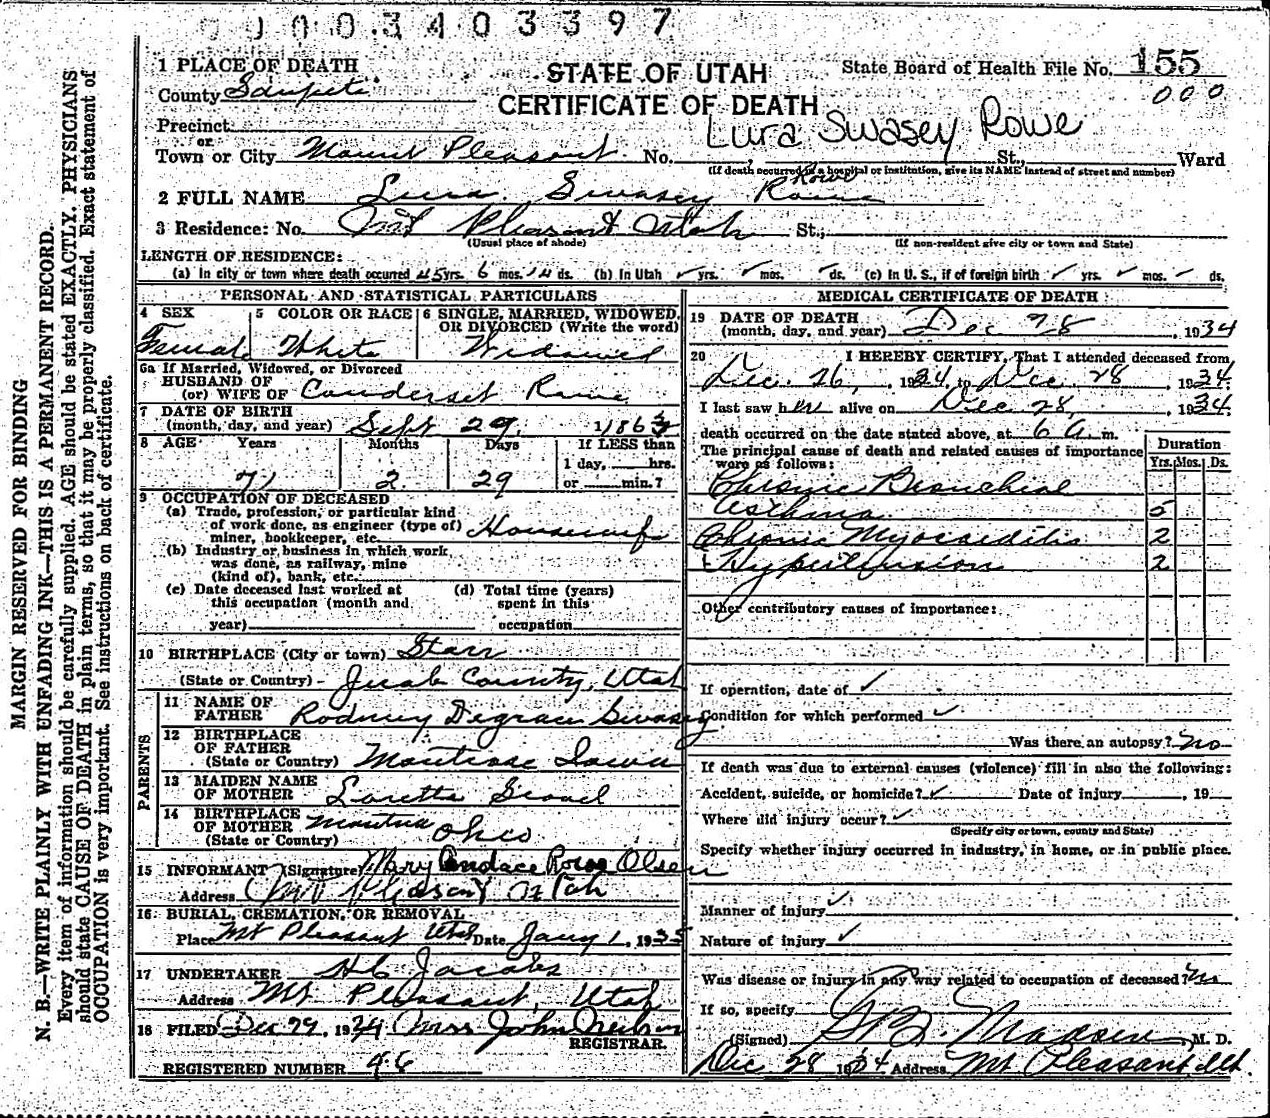 0003403397
1 PLACE OF DEATH
STATE OF UTAH
State Board of Health File No. 155
000
County Sanpete
CERTIFICATE OF DEATH
Lura Swasey Rowe
Precinct
or
Town or City Mount Pleasant No. St., Ward
(If death occurred in a hospital or institution, give its NAME instead of street and number)
Rowe
2 FULL NAME Lura Swasey Rowe
3 Residence: No. Mt Pleasant Utah St.,
(Usual place of abode) (If non-resident give city or town and State)
LENGTH OF RESIDENCE:
(a) In city or town where death occurred 45 yrs. 6 mos. 14 ds. (b) In Utah ✓ yrs. ✓ mos. ds. (c) In U. S., if of foreign birth ✓ yrs. ✓ mos. - ds.
PERSONAL AND STATISTICAL PARTICULARS
4 SEX 5 COLOR OR RACE 6 SINGLE, MARRIED, WIDOWED, OR DIVORCED (Write the word)
Female White Widowed
6a If Married, Widowed, or Divorced
HUSBAND OF
(or) WIFE OF Conderset Rowe
7 DATE OF BIRTH
(month, day, and year) Sept 29, 1863
8 AGE Years Months Days If LESS than
1 day, hrs.
71 2 29 or min.?
9 OCCUPATION OF DECEASED
(a) Trade, profession, or particular kind
of work done, as engineer (type of)
miner, bookkeeper, etc. Housewife
(b) Industry or business in which work
was done, as railway, mine
(kind of), bank, etc.
(c) Date deceased last worked at
this occupation (month and
year)
(d) Total time (years)
spent in this
occupation
10 BIRTHPLACE (City or town) Starr
(State or Country) - Juab County, Utah
PARENTS
11 NAME OF
FATHER Rodney Degrace Swasey
12 BIRTHPLACE
OF FATHER
(State or Country) Montrose Iowa
13 MAIDEN NAME
OF MOTHER Loretta
14 BIRTHPLACE
OF MOTHER Mantua Ohio
(State or Country)
15 INFORMANT (Signature) Mary Candace Rowe Olsen
Address Mt Pleasant Utah
16 BURIAL, CREMATION, OR REMOVAL
Place Mt Pleasant Utah Date Jany 1, 1935
17 UNDERTAKER H C Jacobs
Address Mt Pleasant, Utah
18 FILED Dec 29, 1934 Mrs John
REGISTRAR.
REGISTERED NUMBER 46
MEDICAL CERTIFICATE OF DEATH
19 DATE OF DEATH
(month, day, and year) Dec 28, 1934
20 I HEREBY CERTIFY, That I attended deceased from
Dec. 26, 1934, to Dec. 28 1934.
I last saw her alive on Dec 28, 1934.
death occurred on the date stated above, at 6 a. m.
The principal cause of death and related causes of importance
were as follows:
Duration
Yrs. Mos. Ds.
Chronic Bronchial
Asthma 5
Chronic Myocarditis 2
Hypertension 2
Other contributory causes of importance:
If operation, date of ✓
Condition for which performed ✓
Was there an autopsy? No
If death was due to external causes (violence) fill in also the following:
Accident, suicide, or homicide? ✓ Date of injury , 19
Where did injury occur? ✓
(Specify city or town, county and State)
Specify whether injury occurred in industry, in home, or in public place.
Manner of injury ✓
Nature of injury ✓
Was disease or injury in any way related to occupation of deceased? No
If so, specify
(Signed) Madsen, M. D.
Dec 28 1934 Address Mt Pleasant, Ut.
MARGIN RESERVED FOR BINDING
N. B.—WRITE PLAINLY WITH UNFADING INK—THIS IS A PERMANENT RECORD.
Every item of information should be carefully supplied. AGE should be stated EXACTLY. PHYSICIANS
should state CAUSE OF DEATH in plain terms, so that it may be properly classified. Exact statement of
OCCUPATION is very important. See instructions on back of certificate.